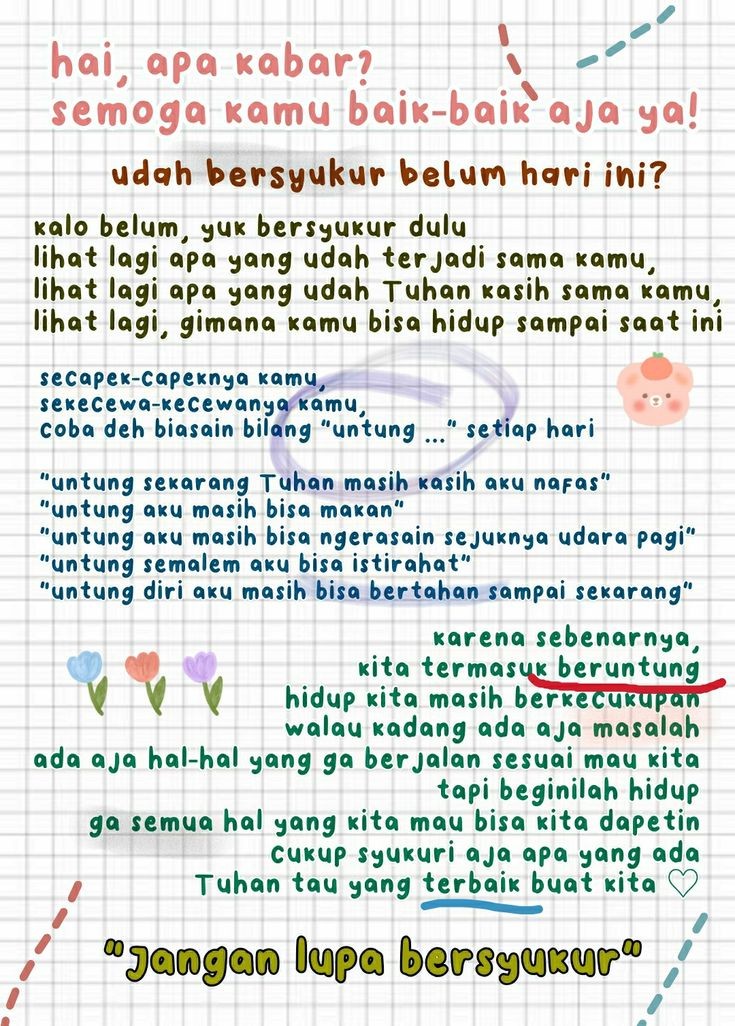 hai, apa kabar?
semoga kamu baik-baik aja ya!
udah bersyukur belum hari ini?
kalo belum, yuk bersyukur dulu
lihat lagi apa yang udah terjadi sama kamu,
lihat lagi apa yang udah Tuhan kasih sama kamu,
lihat lagi, gimana kamu bisa hidup sampai saat ini
secapek-capeknya kamu,
sekecewa-kecewanya kamu,
coba deh biasain bilang "untung ..." setiap hari
"untung sekarang Tuhan masih kasih aku nafas"
"untung aku masih bisa makan"
"untung aku masih bisa ngerasain sejuknya udara pagi"
"untung semalem aku bisa istirahat"
"untung diri aku masih bisa bertahan sampai sekarang"
karena sebenarnya,
kita termasuk beruntung
hidup kita masih berkecukupan
walau kadang ada aja masalah
ada aja hal-hal yang ga berjalan sesuai mau kita
tapi beginilah hidup
ga semua hal yang kita mau bisa kita dapetin
cukup syukuri aja apa yang ada
Tuhan tau yang terbaik buat kita ♡
"Jangan lupa bersyukur"